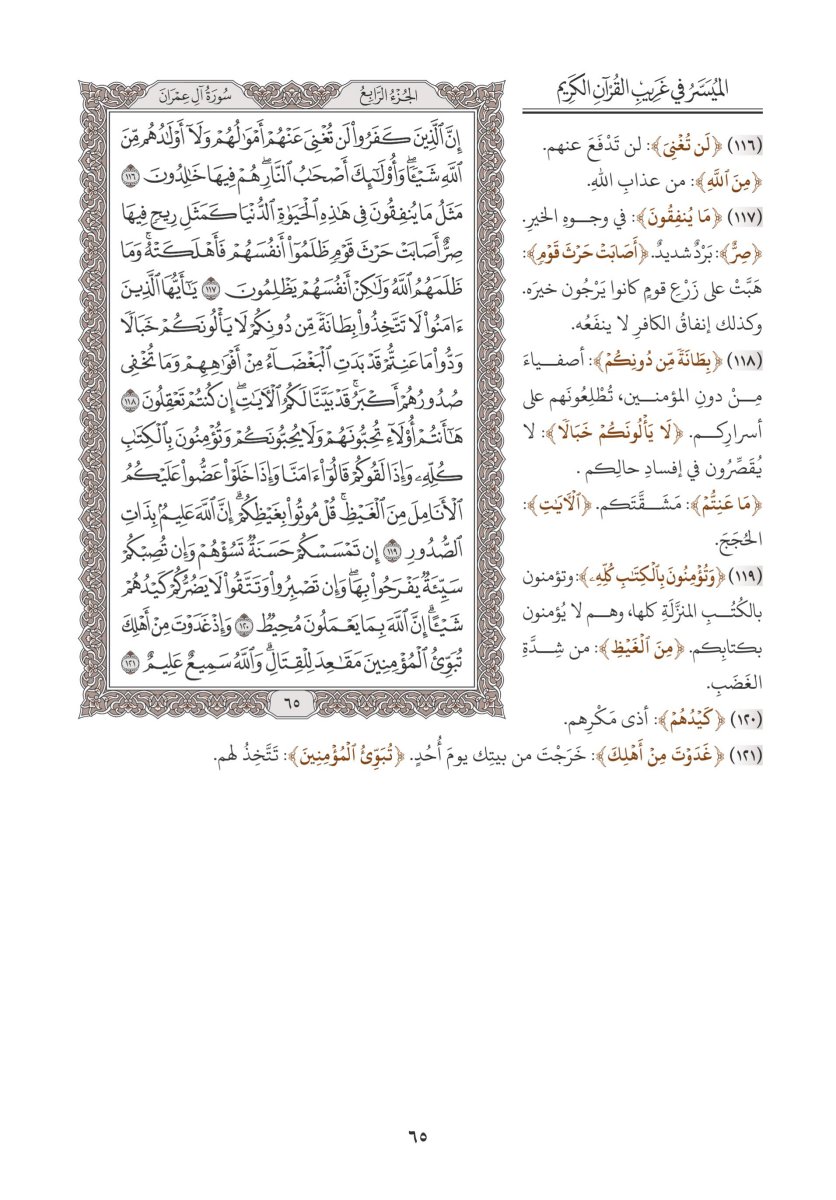 الميسر في غريب القرآن الكريم
(١١٦) ﴿لَن تُغْنِيَ﴾: لن تَدْفَعَ عنهم.
﴿مِنَ ٱللَّهِ﴾: من عذابِ اللهِ.
(١١٧) ﴿مَا يُنفِقُونَ﴾: في وجوهِ الخيرِ.
﴿صِرٌّ﴾: بَرْدٌ شديدٌ. ﴿أَصَابَتْ حَرْثَ قَوْمٖ﴾:
هَبَّتْ على زَرْعِ قومٍ كانوا يَرْجُون خيرَه.
وكذلك إنفاقُ الكافرِ لا ينفَعُه.
(١١٨) ﴿بِطَانَةٗ مِّن دُونِكُمْ﴾: أصفياءَ
مِنْ دونِ المؤمنين، تُطْلِعُونَهم على
أسرارِكم. ﴿لَا يَأْلُونَكُمْ خَبَالٗا﴾: لا
يُقَصِّرُون في إفسادِ حالِكم .
﴿مَا عَنِتُّمْ﴾: مَشَقَّتَكم. ﴿ٱلْأٓيَٰتِ﴾:
الحُجَجَ.
(١١٩) ﴿وَتُؤْمِنُونَ بِٱلْكِتَٰبِ كُلِّهِۦ﴾: وتؤمنون
بالكُتُبِ المنزَّلَةِ كلها، وهم لا يُؤمنون
بكتابِكم. ﴿مِنَ ٱلْغَيْظِ﴾: من شِدَّةِ
الغَضَبِ.
(١٢٠) ﴿كَيْدُهُمْ﴾: أذى مَكْرِهم.
(١٢١) ﴿غَدَوْتَ مِنْ أَهْلِكَ﴾: خَرَجْتَ من بيتِك يومَ أُحُدٍ. ﴿تُبَوِّئُ ٱلْمُؤْمِنِينَ﴾: تَتَّخِذُ لهم.
الجزء الرابع
سورة آل عمران
إِنَّ ٱلَّذِينَ كَفَرُوا۟ لَن تُغْنِيَ عَنْهُمْ أَمْوَٰلُهُمْ وَلَآ أَوْلَٰدُهُم مِّنَ
ٱللَّهِ شَيْـًٔاۖ وَأُو۟لَٰٓئِكَ أَصْحَٰبُ ٱلنَّارِۖ هُمْ فِيهَا خَٰلِدُونَ ١١٦
مَثَلُ مَا يُنفِقُونَ فِي هَٰذِهِ ٱلْحَيَوٰةِ ٱلدُّنْيَا كَمَثَلِ رِيحٖ فِيهَا
صِرٌّ أَصَابَتْ حَرْثَ قَوْمٖ ظَلَمُوٓا۟ أَنفُسَهُمْ فَأَهْلَكَتْهُۚ وَمَا
ظَلَمَهُمُ ٱللَّهُ وَلَٰكِنْ أَنفُسَهُمْ يَظْلِمُونَ ١١٧ يَٰٓأَيُّهَا ٱلَّذِينَ
ءَامَنُوا۟ لَا تَتَّخِذُوا۟ بِطَانَةٗ مِّن دُونِكُمْ لَا يَأْلُونَكُمْ خَبَالٗا
وَدُّوا۟ مَا عَنِتُّمْ قَدْ بَدَتِ ٱلْبَغْضَآءُ مِنْ أَفْوَٰهِهِمْ وَمَا تُخْفِي
صُدُورُهُمْ أَكْبَرُۚ قَدْ بَيَّنَّا لَكُمُ ٱلْأٓيَٰتِۖ إِن كُنتُمْ تَعْقِلُونَ ١١٨
هَٰٓأَنتُمْ أُو۟لَآءِ تُحِبُّونَهُمْ وَلَا يُحِبُّونَكُمْ وَتُؤْمِنُونَ بِٱلْكِتَٰبِ
كُلِّهِۦ وَإِذَا لَقُوكُمْ قَالُوٓا۟ ءَامَنَّا وَإِذَا خَلَوْا۟ عَضُّوا۟ عَلَيْكُمُ
ٱلْأَنَامِلَ مِنَ ٱلْغَيْظِۚ قُلْ مُوتُوا۟ بِغَيْظِكُمْۗ إِنَّ ٱللَّهَ عَلِيمُۢ بِذَاتِ
ٱلصُّدُورِ ١١٩ إِن تَمْسَسْكُمْ حَسَنَةٞ تَسُؤْهُمْ وَإِن تُصِبْكُمْ
سَيِّئَةٞ يَفْرَحُوا۟ بِهَاۖ وَإِن تَصْبِرُوا۟ وَتَتَّقُوا۟ لَا يَضُرُّكُمْ كَيْدُهُمْ
شَيْـًٔاۗ إِنَّ ٱللَّهَ بِمَا يَعْمَلُونَ مُحِيطٞ ١٢٠ وَإِذْ غَدَوْتَ مِنْ أَهْلِكَ
تُبَوِّئُ ٱلْمُؤْمِنِينَ مَقَٰعِدَ لِلْقِتَالِۗ وَٱللَّهُ سَمِيعٌ عَلِيمٌ ١٢١
٦٥
٦٥